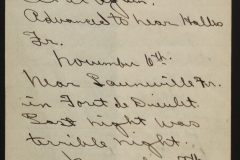 Advanced to near Halles
Fr.
November 6th.
Near Launville Fr.
in Foret de Dieulet.
Last night was
terrible night.